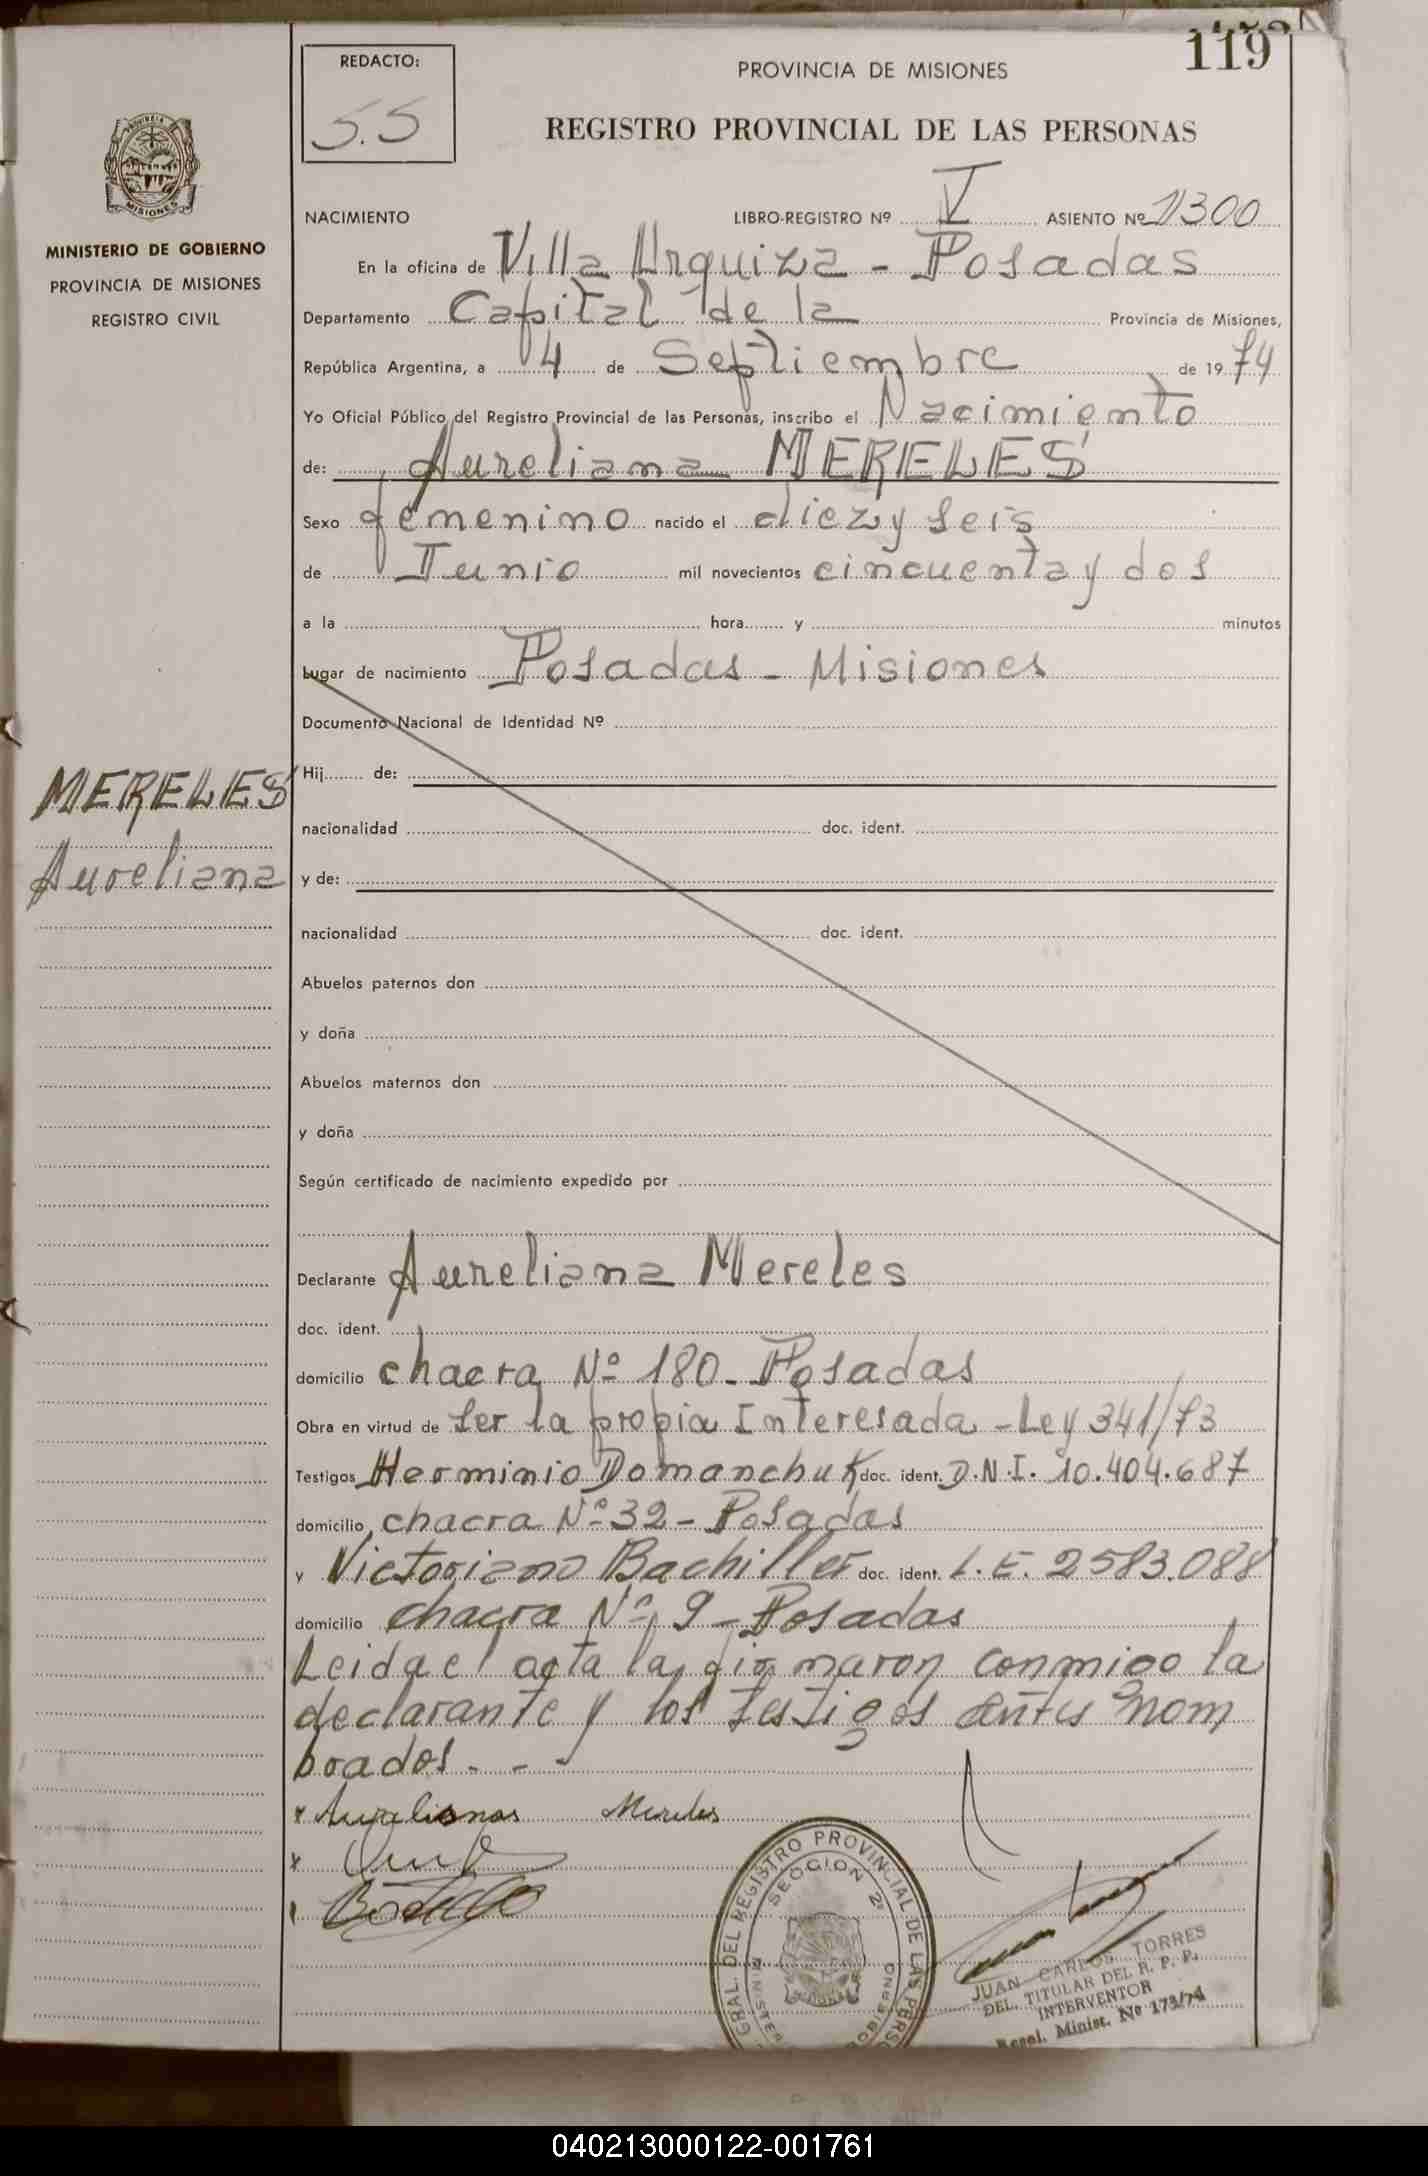 119
REDACTO:
S.S
PROVINCIA DE MISIONES
REGISTRO PROVINCIAL DE LAS PERSONAS
PROVINCIA DE
MISIONES
MINISTERIO DE GOBIERNO
PROVINCIA DE MISIONES
REGISTRO CIVIL
NACIMIENTO LIBRO-REGISTRO Nº V ASIENTO Nº 1300
En la oficina de Villa Urquiza - Posadas
Departamento Capital de la Provincia de Misiones,
República Argentina, a 4 de Septiembre de 1974
Yo Oficial Público del Registro Provincial de las Personas, inscribo el Nacimiento
de: Aureliana MERELES
Sexo femenino nacido el diez y seis
de Junio mil novecientos cincuenta y dos
a la hora y minutos
Lugar de nacimiento Posadas - Misiones
Documento Nacional de Identidad Nº
Hij de:
MERELES
Aureliana
nacionalidad doc. ident.
y de:
nacionalidad doc. ident.
Abuelos paternos don
y doña
Abuelos maternos don
y doña
Según certificado de nacimiento expedido por
Declarante Aureliana Mereles
doc. ident.
domicilio chacra Nº 180 - Posadas
Obra en virtud de ser la propia Interesada - Ley 341/73
Testigos Herminio Domanchuk doc. ident. D.N.I. 10.404.687
domicilio chacra Nº 32 - Posadas
y Victoriano Bachiller doc. ident. L.E. 2583.088
domicilio chacra Nº 9 - Posadas
Leida el acta la firmaron conmigo la
declarante y los testigos antes nom
brados. -
Aureliana Mereles
GRAL. DEL REGISTRO PROVINCIAL DE LAS PERSO
SECCION 2ª
JUAN CARLOS TORRES
DEL. TITULAR DEL R. P. P.
INTERVENTOR
Resol. Minist. Nº 173/74
040213000122-001761